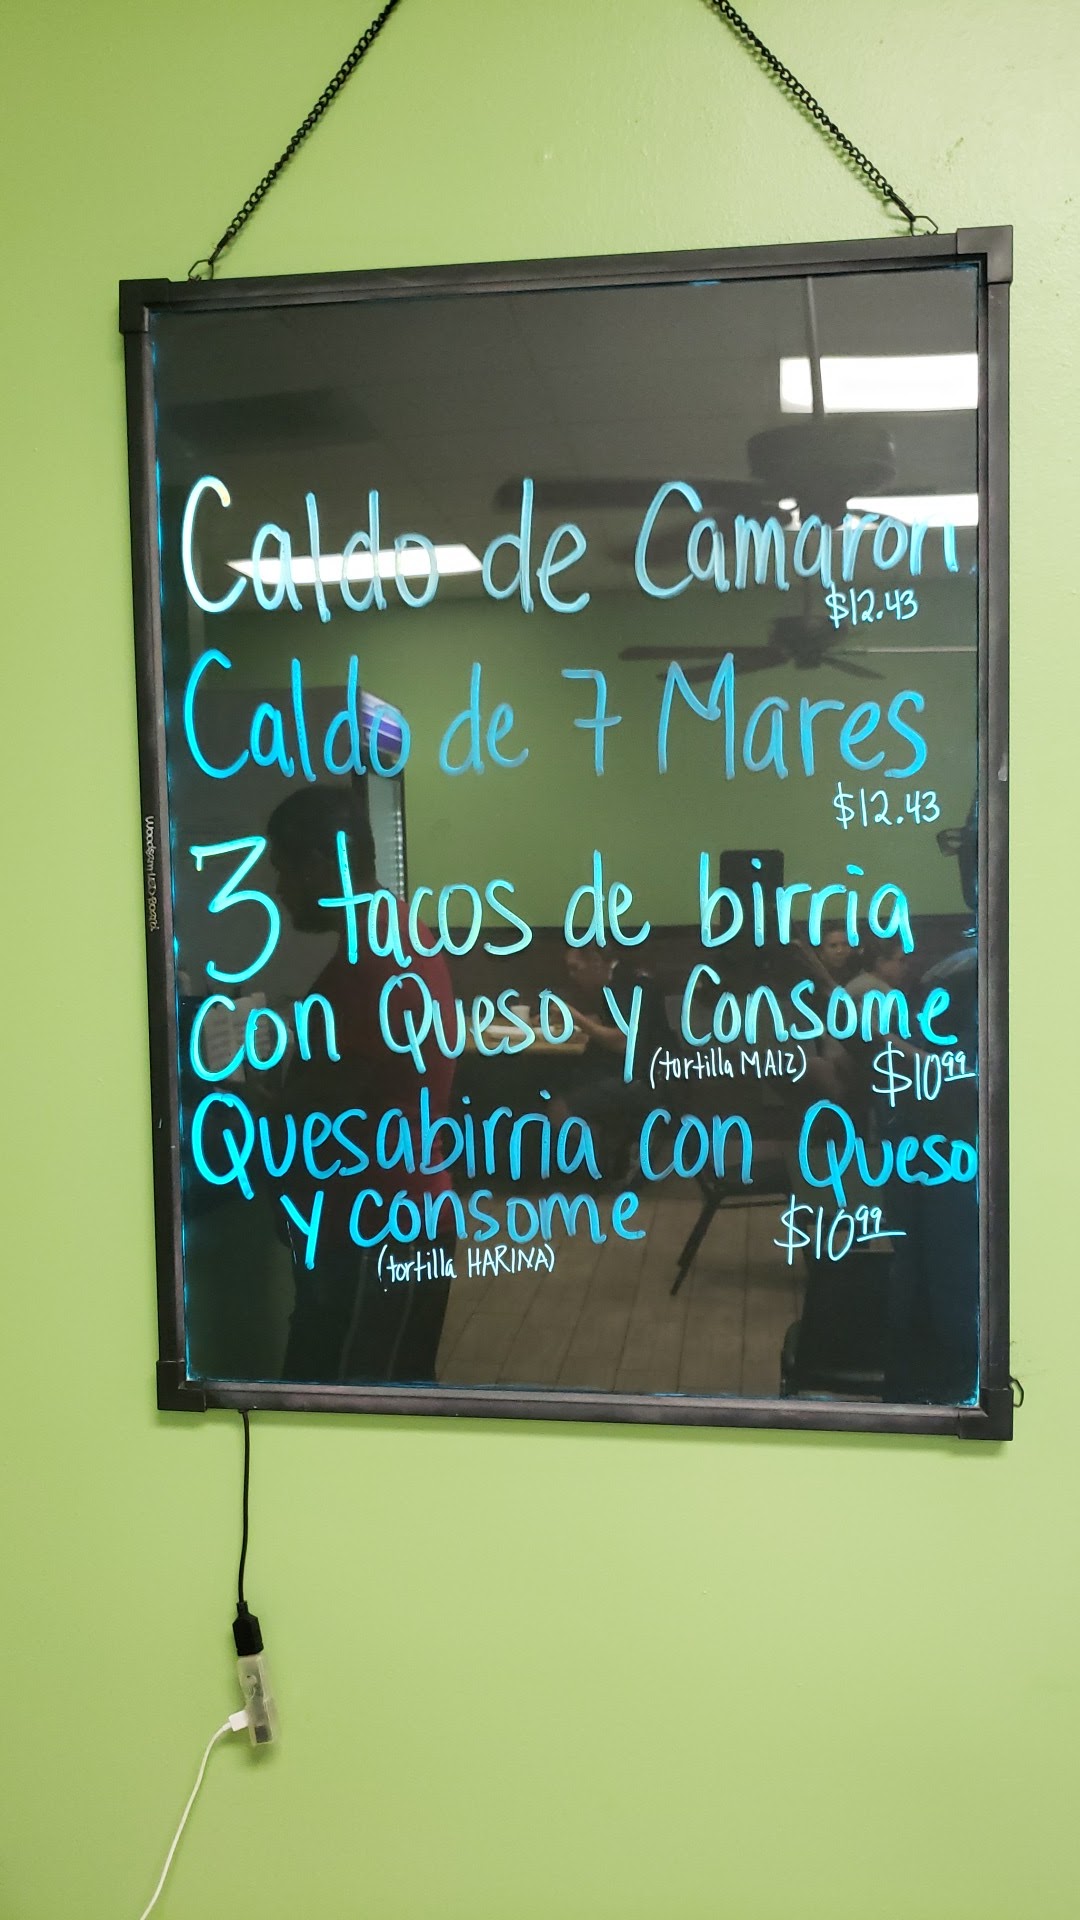 Caldo de Camaron
$12.43
Caldo de 7 Mares
$12.43
3 tacos de birria
con Queso y Consome
(tortilla MAIZ) $10.99
Quesabirria con Queso
y consome $10.99
(tortilla HARINA)